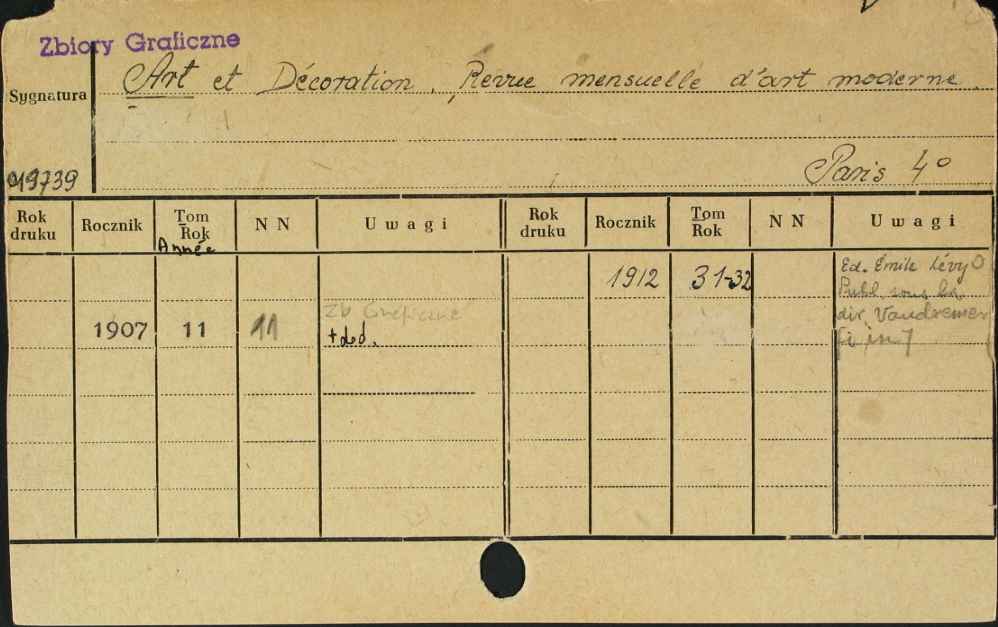 Zbiory Graficzne
Art et Décoration. Revue mensuelle d'art moderne.
Sygnatura
Paris 4°
019739
Rok druku Rocznik Tom Rok Année NN Uwagi Rok druku Rocznik Tom Rok NN Uwagi
1912 31-32 Ed. Émile Lévy
Publ. sous la
dir. Vaudremer
1907 11 11 Zb Graficzne
+ dod.